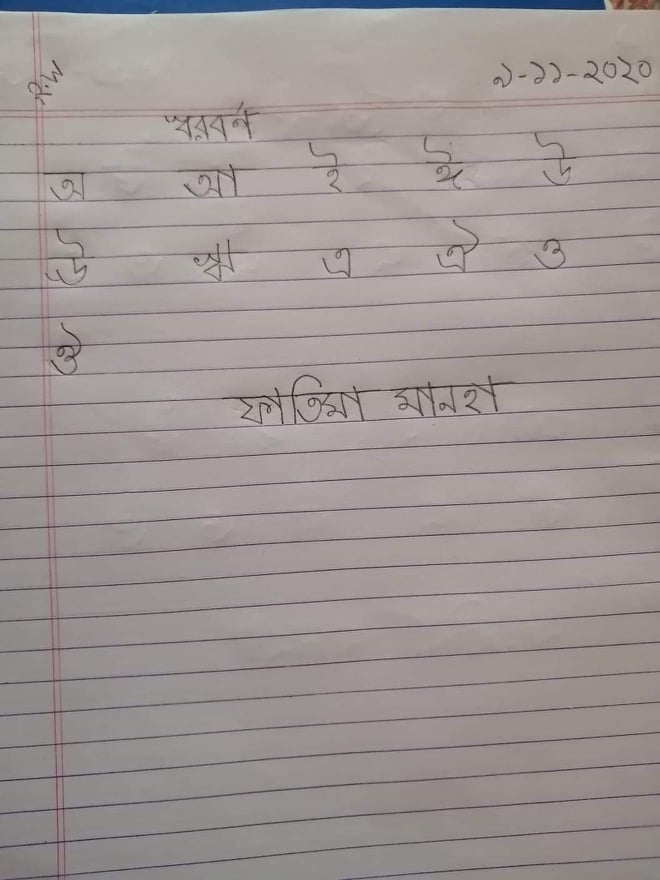 ৯-১১-২০২০
স্বরবর্ণ
অ আ ই ঈ উ
ঊ ঋ এ ঐ ও
ঔ
ফাতিমা মানহা